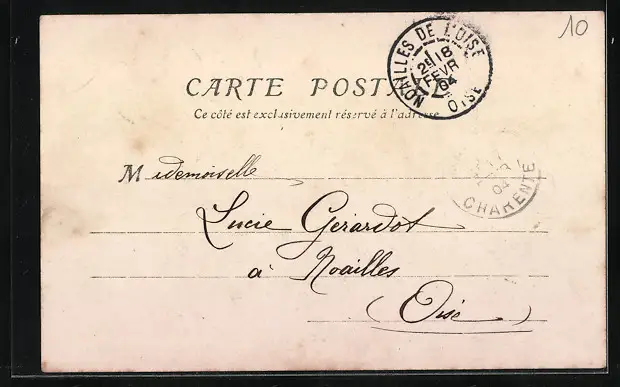 10
NOAILLES DE L'OISE
2E 18
FEVR
04
OISE
CARTE POSTA
Ce côté est exclusivement réservé à l'adresse
Mademoiselle
04
CHARENTE
Lucie Gérardot
à Noailles
(Oise)